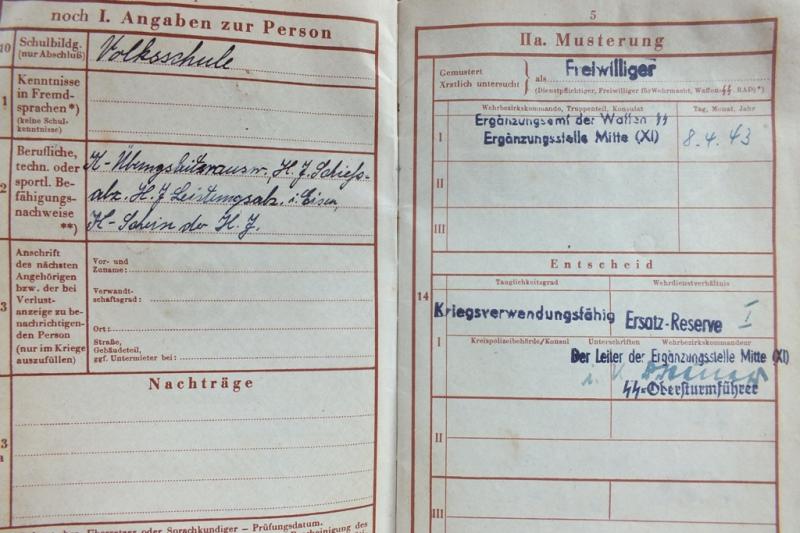 noch I. Angaben zur Person
10 Schulbildg.
(nur Abschluß)
Volksschule
1 Kenntnisse
in Fremd-
sprachen*)
(keine Schul-
kenntnisse)
2 Berufliche,
techn. oder
sportl. Be-
fähigungs-
nachweise
**)
K-Übungsleiterausw., H.J. Schieß-
abz. H.J Leistungsabz. i. Eisen,
K-Schein der H.J.
3 Anschrift
des nächsten
Angehörigen
bzw. der bei
Verlust-
anzeige zu
benachrichtigen-
den Person
(nur im Kriege
auszufüllen)
Vor- und
Zuname:
Verwandt-
schaftsgrad:
Ort:
Straße,
Gebäudeteil,
ggf. Untermieter bei:
Nachträge
3
a
Übersetzer oder Sprachkundiger – Prüfungsdatum.
Bescheinigung des
5
IIa. Musterung
Gemustert
Ärztlich untersucht } als Freiwilliger
(Dienstpflichtiger, Freiwilliger für Wehrmacht, Waffen-SS, RAD)*)
Wehrbezirkskommando, Truppenteil, Konsulat
Tag, Monat, Jahr
I
Ergänzungsamt der Waffen SS
Ergänzungsstelle Mitte (XI)
8.4.43
II
III
Entscheid
14
Tauglichkeitsgrad
Wehrdienstverhältnis
Kriegsverwendungsfähig
Ersatz-Reserve I
I
Kreispolizeibehörde/Konsul
Unterschriften
Wehrbezirkskommandeur
Der Leiter der Ergänzungsstelle Mitte (XI)
i. V.
SS-Obersturmführer
II
III